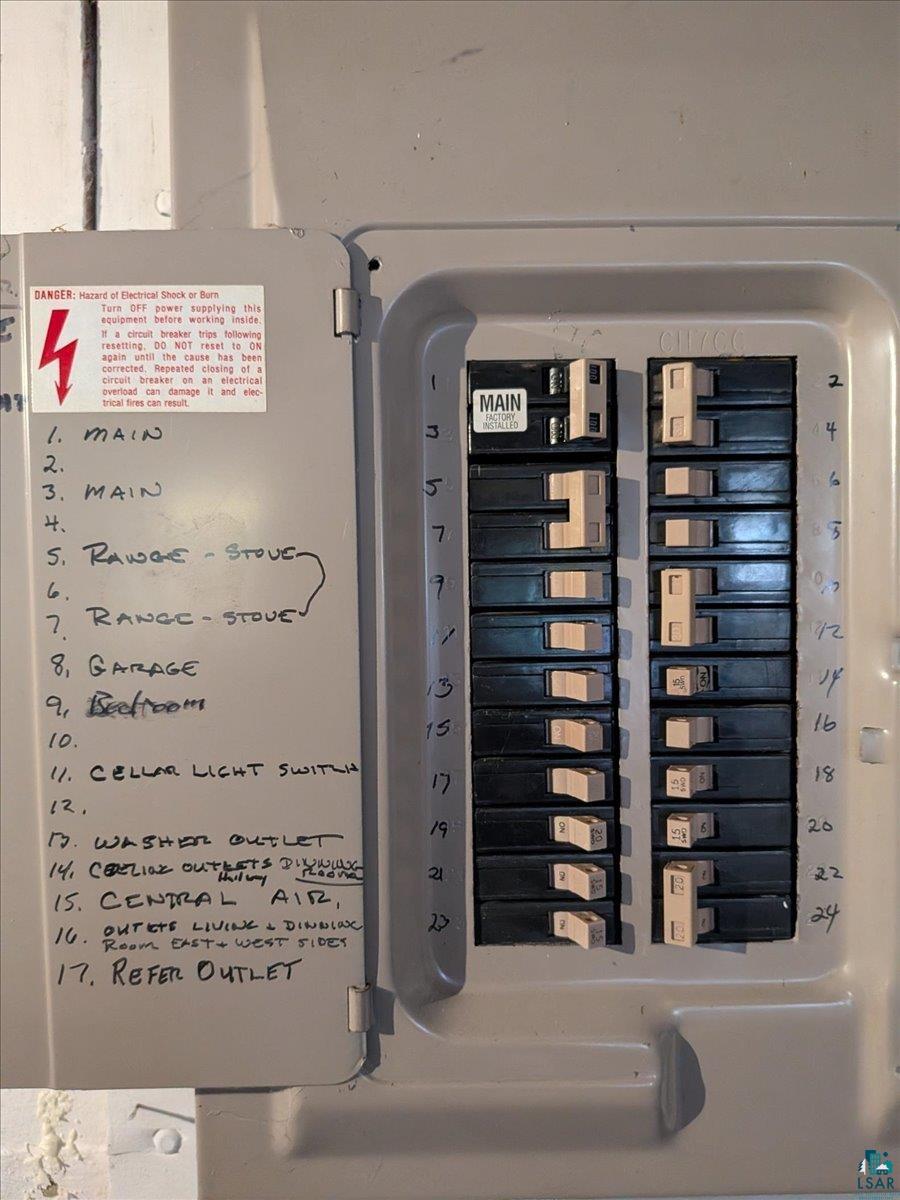 DANGER: Hazard of Electrical Shock or Burn
Turn OFF power supplying this
equipment before working inside.
If a circuit breaker trips following
resetting, DO NOT reset to ON
again until the cause has been
corrected. Repeated closing of
a circuit breaker on an electrical
overload can damage it and elec-
trical fires can result.
1. MAIN
2.
3. MAIN
4.
5. RANGE - STOVE
6.
7. RANGE - STOVE
8, GARAGE
9, Bedroom
10.
11. CELLAR LIGHT SWITCH
12.
13. WASHER OUTLET
14. OUTLETS DINNING
Hallway ROOM
15. CENTRAL AIR,
16. OUTLETS LIVING + DINNING
ROOM EAST + WEST SIDES
17. REFER OUTLET
CH7CC
MAIN
FACTORY
INSTALLED
1
3
5
7
9
11
13
15
17
19
21
23
2
4
6
8
10
12
14
16
18
20
22
24
ON
15
SWD
ON
15
SWD
ON
15
SWD
NO
NO
20
NO
15
NO
15
20
20
LSAR